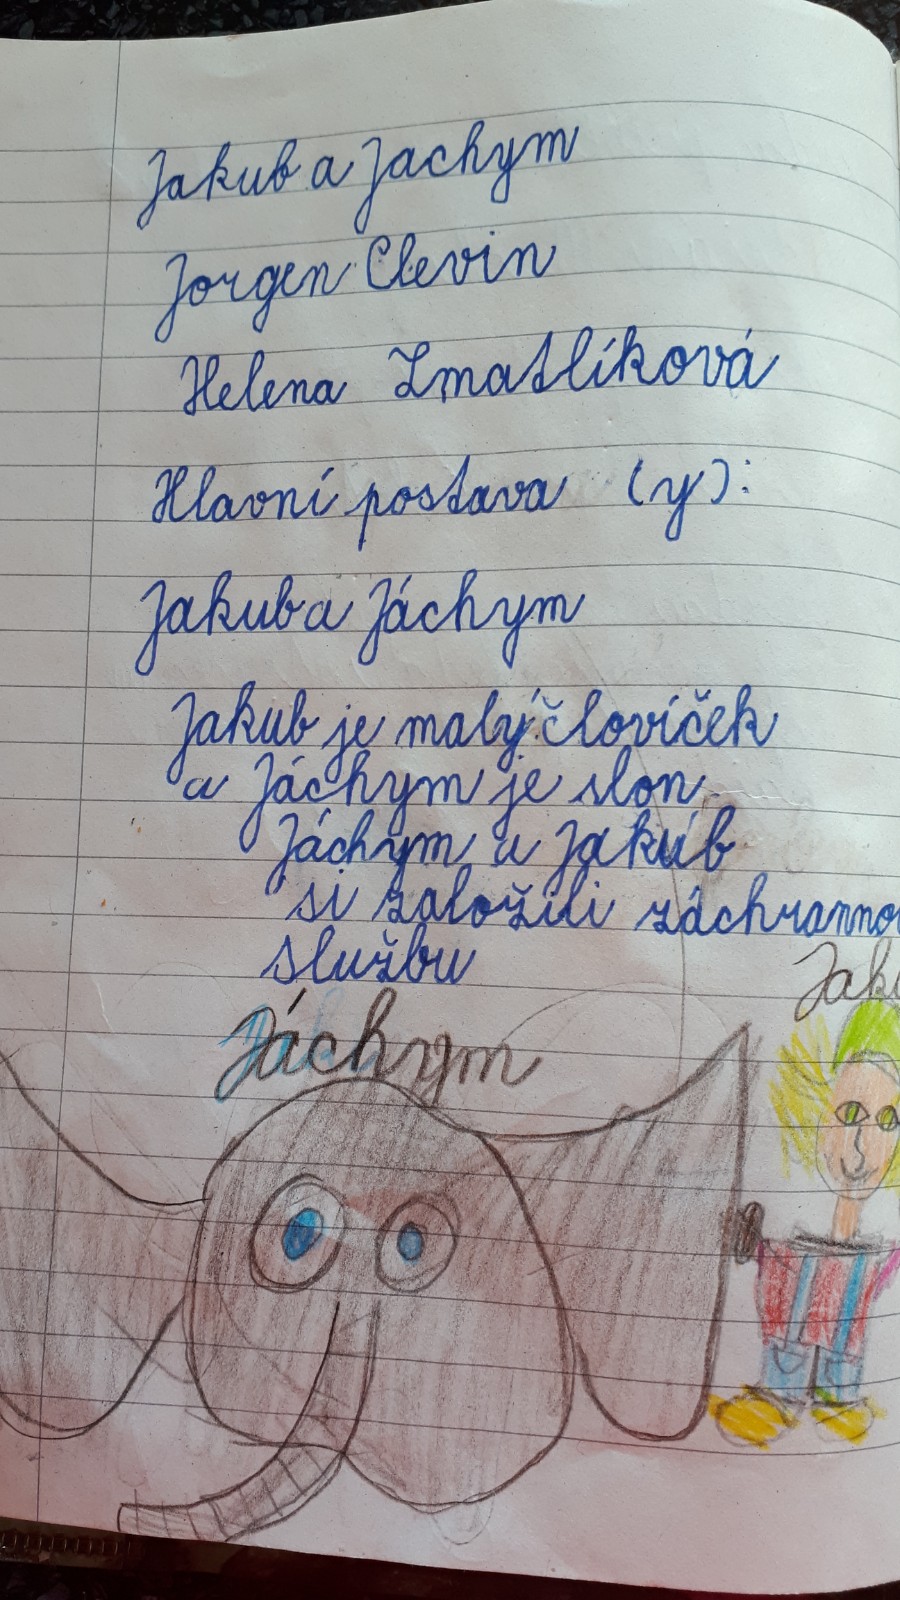 Jakub a Jachym
Jorgen Clevin
Helena Zmatlíková
Hlavní postava (y):
Jakub a Jáchym
Jakub je malý človíček
a Jáchym je slon
Jáchym a Jakub
si založili záchrannou
službu
Jáchym
Jaku